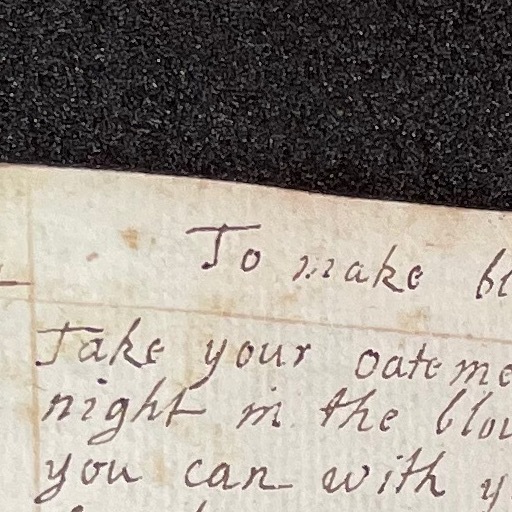 To make bl
Take your oateme
night in the blou
you can with y